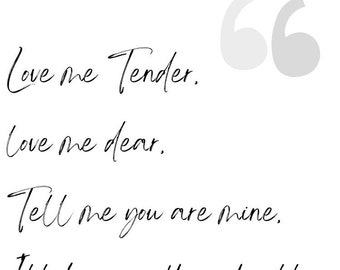 Love me Tender,
love me dear,
Tell me you are mine.